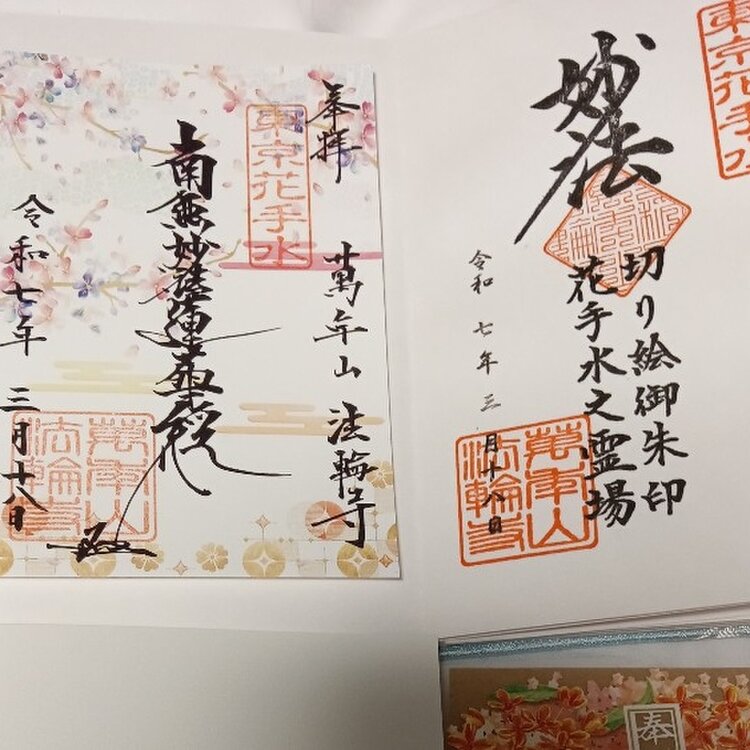 東京花手水
妙法
切り絵御朱印
花手水之霊場
令和 七年 三月十八日
萬年山
法輪寺
奉拝
東京花手水
萬年山 法輪寺
南無妙法蓮華経
令和七年 三月十八日
萬年山
法輪寺
奉